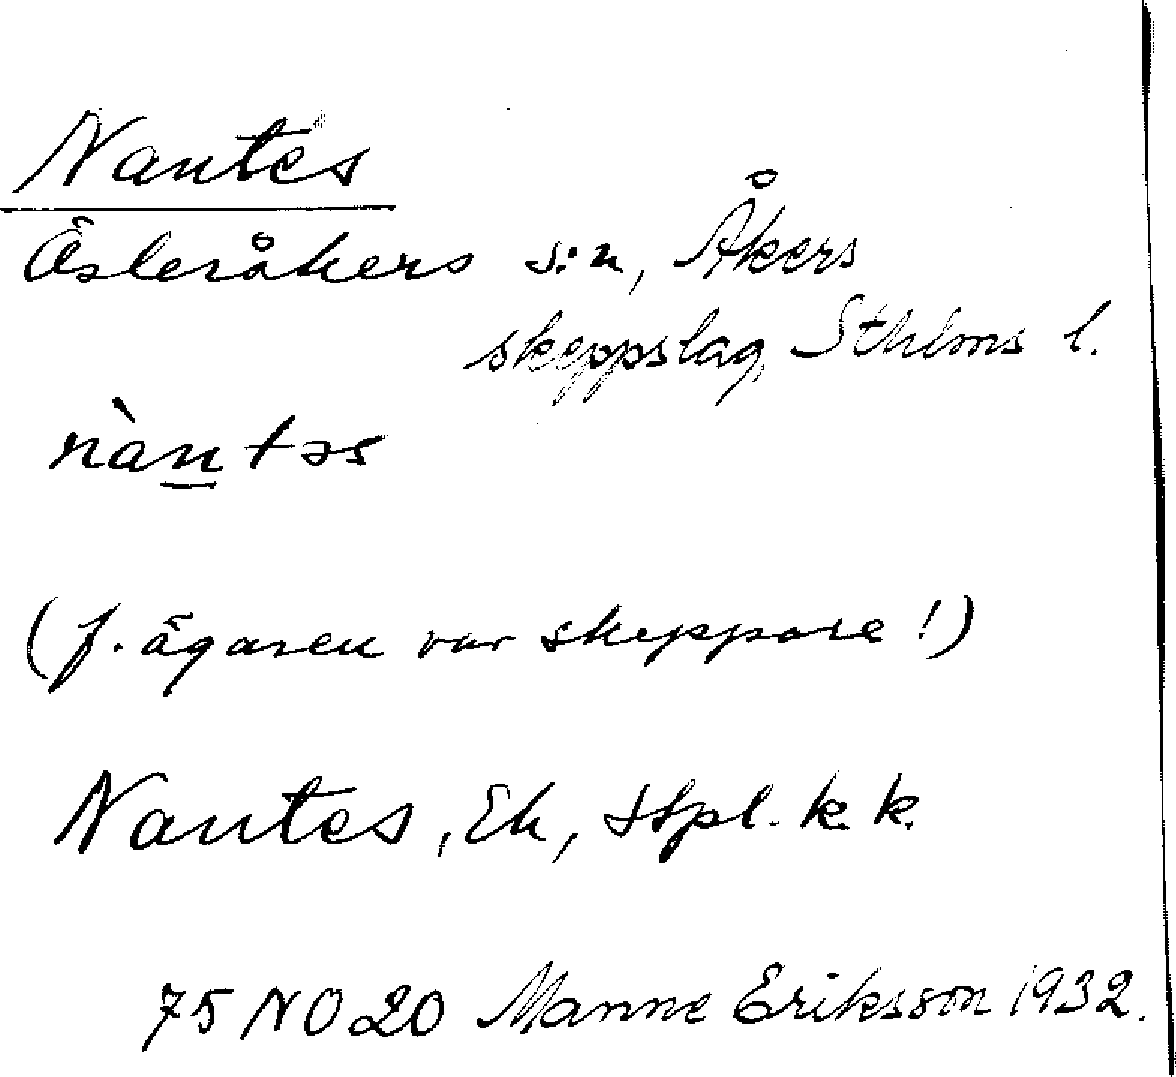 Nantes
Österåkers s:n, Åkers
skeppslag, Sthlms l.
nàntəs
(f. ägaren var skeppare!)
Nantes, Ek, Hpl. k. k.
75 NO 20 Manne Eriksson 1932.